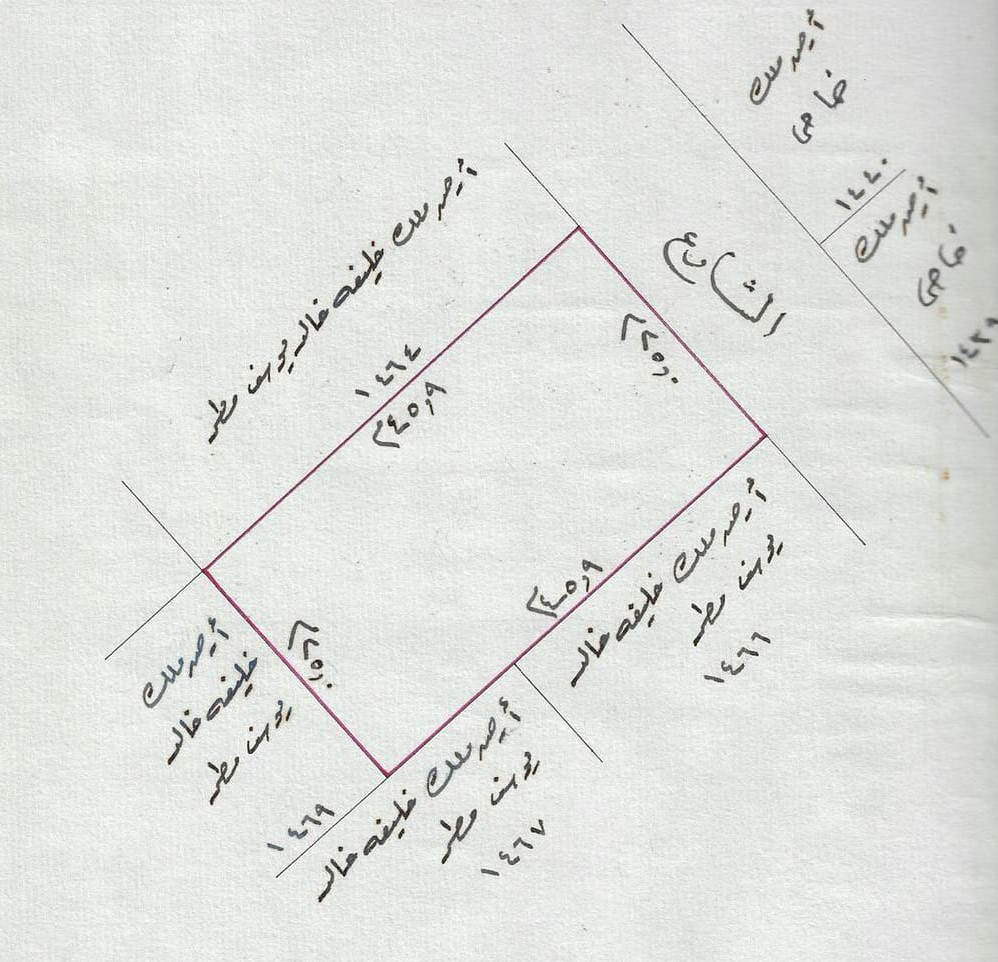 أرض ملك
خاص
١٤٤٠
أرض ملك
خاص
١٤٣٩
الشارع
أرض ملك خليفه خالد يوسف مطر
١٤٦٤
٤٥٫٩
٤٥٫٩
أرض ملك خليفه خالد
يوسف مطر
١٤٦٦
أرض ملك
خليفه خالد
يوسف مطر
١٤٦٩
أرض ملك خليفه خالد
يوسف مطر
١٤٦٧